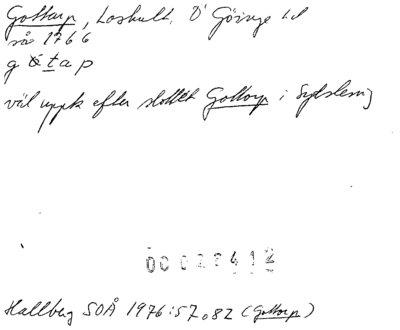 Gottarp, Loshult, Ö Göinge hd
så 1766
g o t a p
väl uppk efter slottet Gottorp i Sydslesvig
00028412
Hallberg SOÅ 1976:57, 82 (Gottorp)